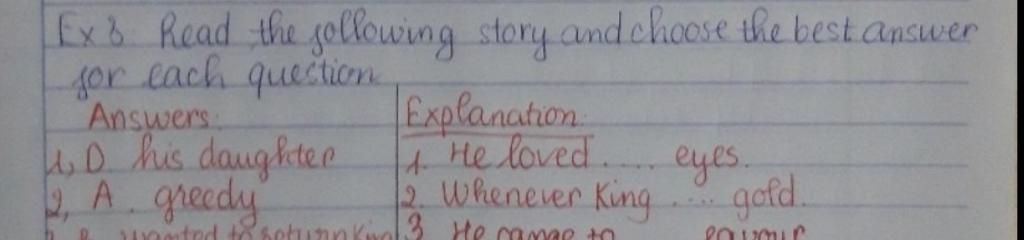 Ex 8: Read the following story and choose the best answer
for each question
Answers:
Explanation:
1, D his daughter
1. He loved .... eyes.
2, A. greedy
2. Whenever King .... gold.
wanted to return King
3 He came to favour